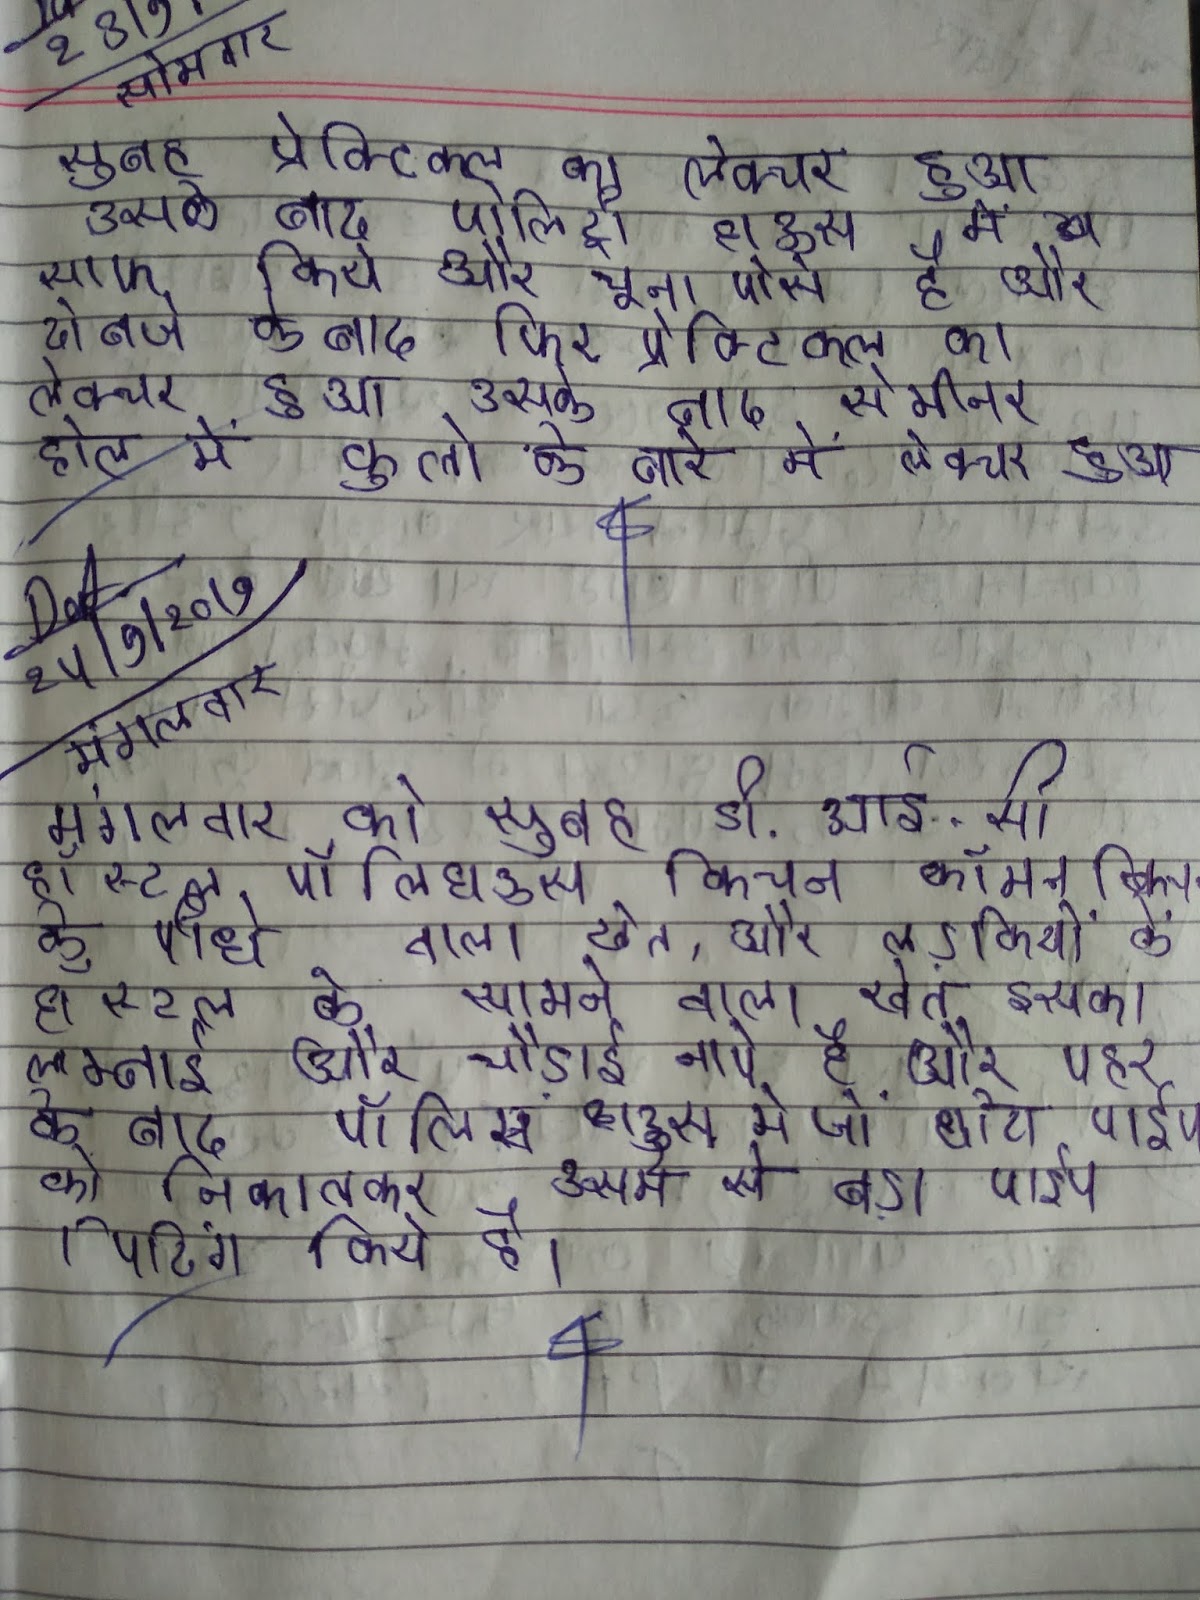 23/9/
सोमवार
सुबह प्रेक्टिकल का लेक्चर हुआ
उसके बाद पोलिट्री हाऊस में
साफ किये और चूना पोसे है और
दो बजे के बाद फिर प्रेक्टिकल का
लेक्चर हुआ उसके बाद सेमीनर
होल में कुत्तो के बारे में लेक्चर हुआ
Dat
24/9/2019
मंगलवार
मंगलवार को सुबह डी. आई. सी
हॉस्टल, पॉलिघउस किचन कॉमन
के पीधे वाला खेत, और लड़कियों कें
हास्टल के सामने वाला खेत इसका
लम्बाई और चौड़ाई नापे है और पहर
के बाद हाऊस मे जो छोटा पाईप
को निकालकर उसमे से बड़ा पाईप
पिटिंग किये है।